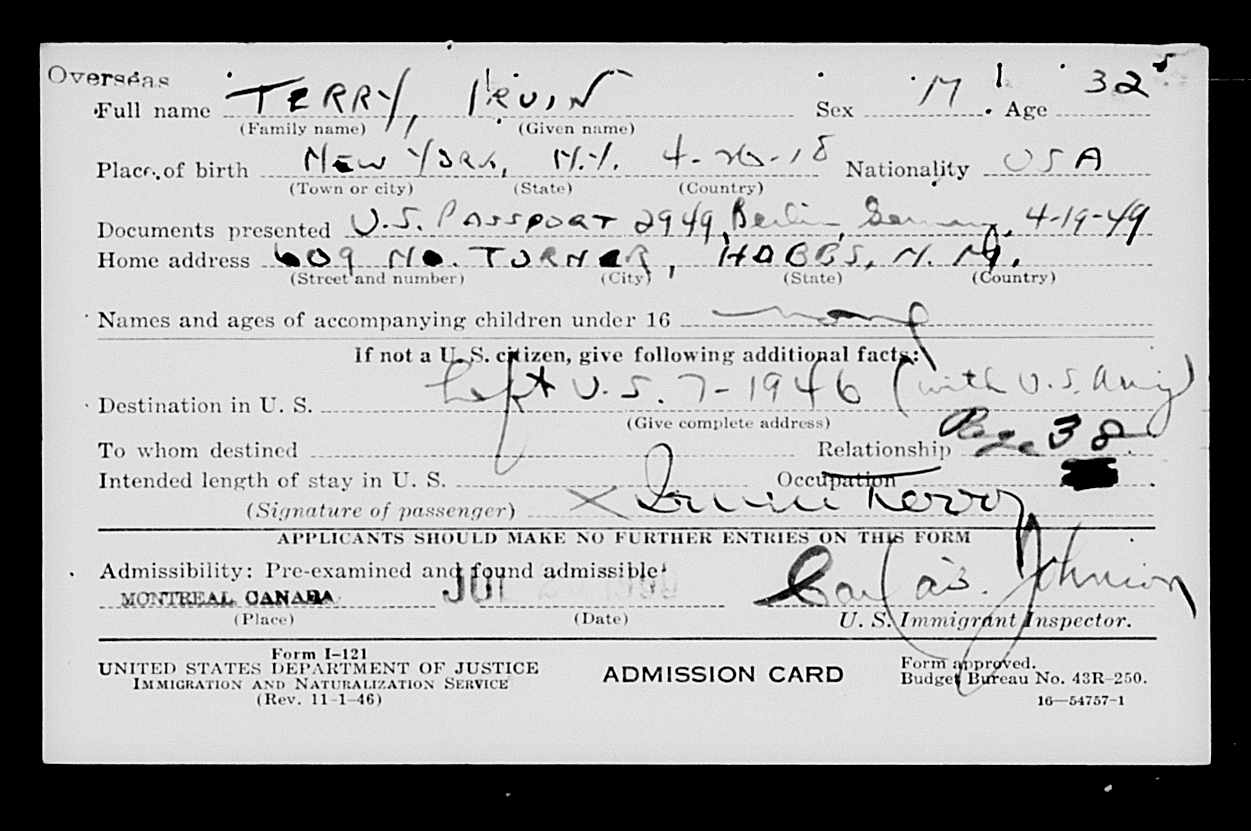 Overseas
Full name TERRY, IRVIN Sex M Age 32
(Family name) (Given name)
Place of birth NEW YORK, N.Y. 4-26-18 Nationality USA
(Town or city) (State) (Country)
Documents presented U.S. PASSPORT 2949, Berlin, Germany, 4-19-49
Home address 609 NO. TURNER, HOBBS, N. M.
(Street and number) (City) (State) (Country)
Names and ages of accompanying children under 16 none
If not a U. S. citizen, give following additional facts:
Destination in U. S. Left U.S. 7-1946 (with U.S. Army)
(Give complete address)
To whom destined Relationship Page 38
Intended length of stay in U. S. Occupation
(Signature of passenger) X Irvin Terry
APPLICANTS SHOULD MAKE NO FURTHER ENTRIES ON THIS FORM
Admissibility: Pre-examined and found admissible
MONTREAL CANADA JUL Johnson
(Place) (Date) U. S. Immigrant Inspector.
Form I-121
UNITED STATES DEPARTMENT OF JUSTICE
IMMIGRATION AND NATURALIZATION SERVICE
(Rev. 11-1-46)
ADMISSION CARD
Form approved.
Budget Bureau No. 43R-250.
16—54757-1